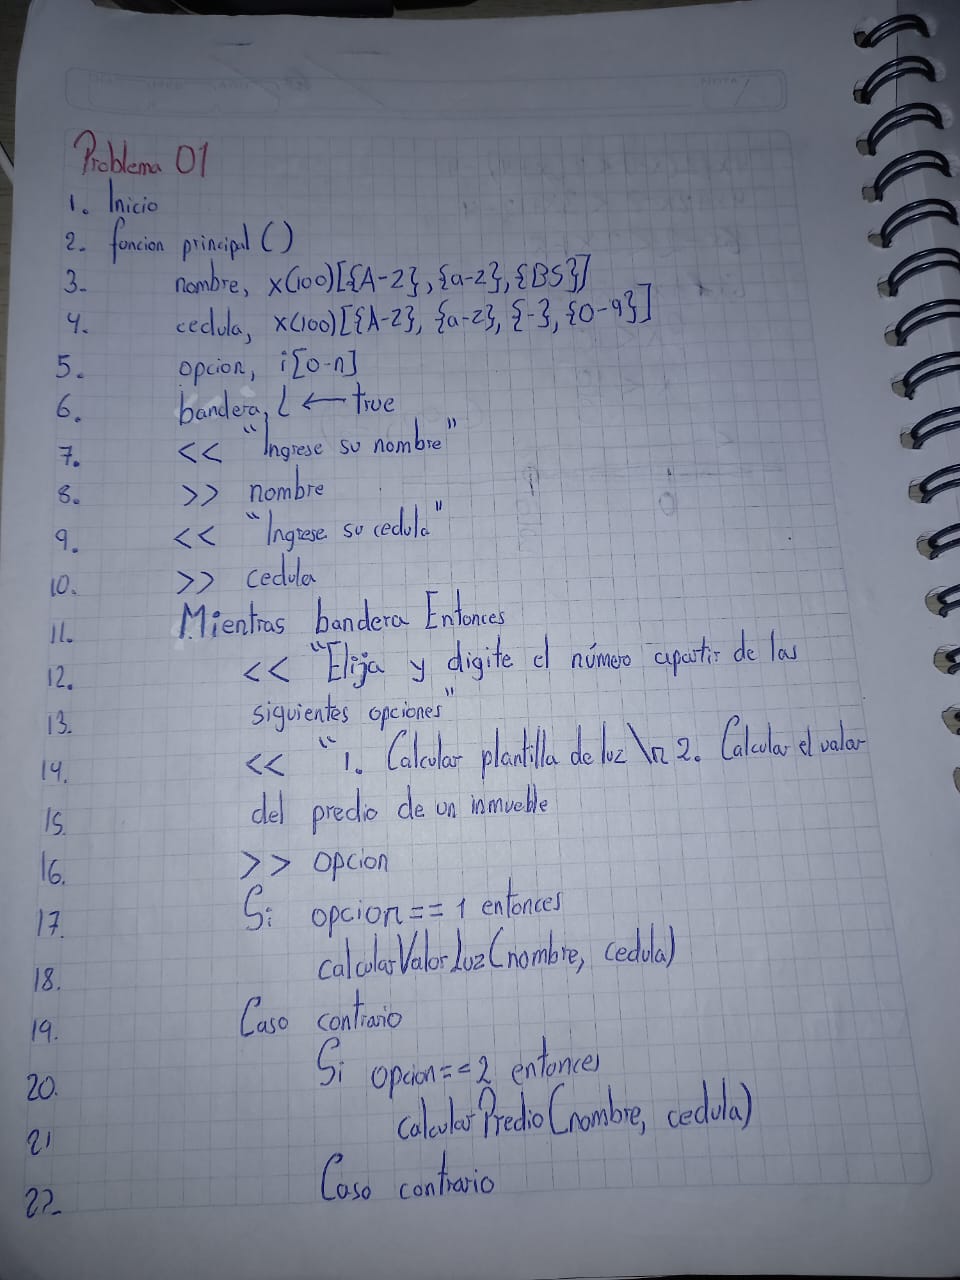 Problema 01
1. Inicio
2. funcion principal ()
3. nombre, x(100)[{A-Z},{a-z},{BS}]
4. cedula, x(100)[{A-Z}, {a-z}, {-}, {0-9}]
5. opcion, i[0-n]
6. bandera, L ← true
7. << "Ingrese su nombre"
8. >> nombre
9. << "Ingrese su cedula"
10. >> cedula
11. Mientras bandera Entonces
12. << "Elija y digite el número apartir de las
13. siguientes opciones"
14. << "1. Calcular plantilla de luz \n 2. Calcular el valor
15. del predio de un inmueble
16. >> opcion
17. Si opcion == 1 entonces
18. calcularValorLuz(nombre, cedula)
19. Caso contrario
20. Si opcion == 2 entonces
21 calcularPredio(nombre, cedula)
22. Caso contrario